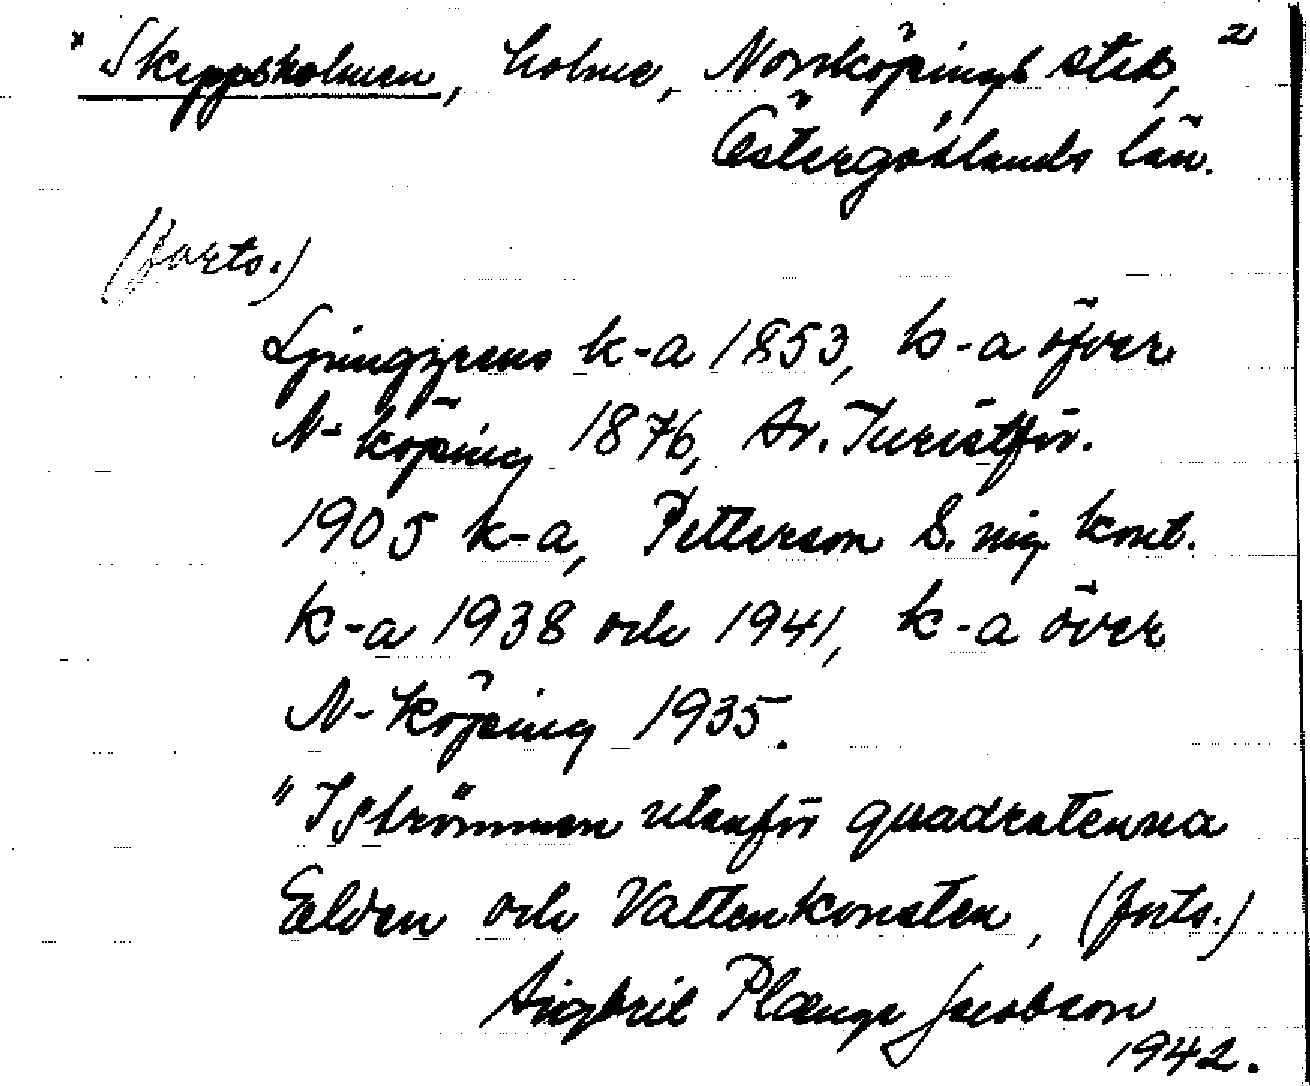 * Skeppsholmen, holme, Norrköpings stad, 2
Östergötlands län.
(forts.)
Ljunggrens k-a 1853, k-a över
N-köping 1876, Sv. Turistför.
1905 k-a, Petterson S. ing. kont.
k-a 1938 och 1941, k-a över
N-köping 1935.
"I strömmen utanför quadraterna
Eelden och Vattenkonsten, (forts.)
Sigbrit Plænge Jacobson
1942.